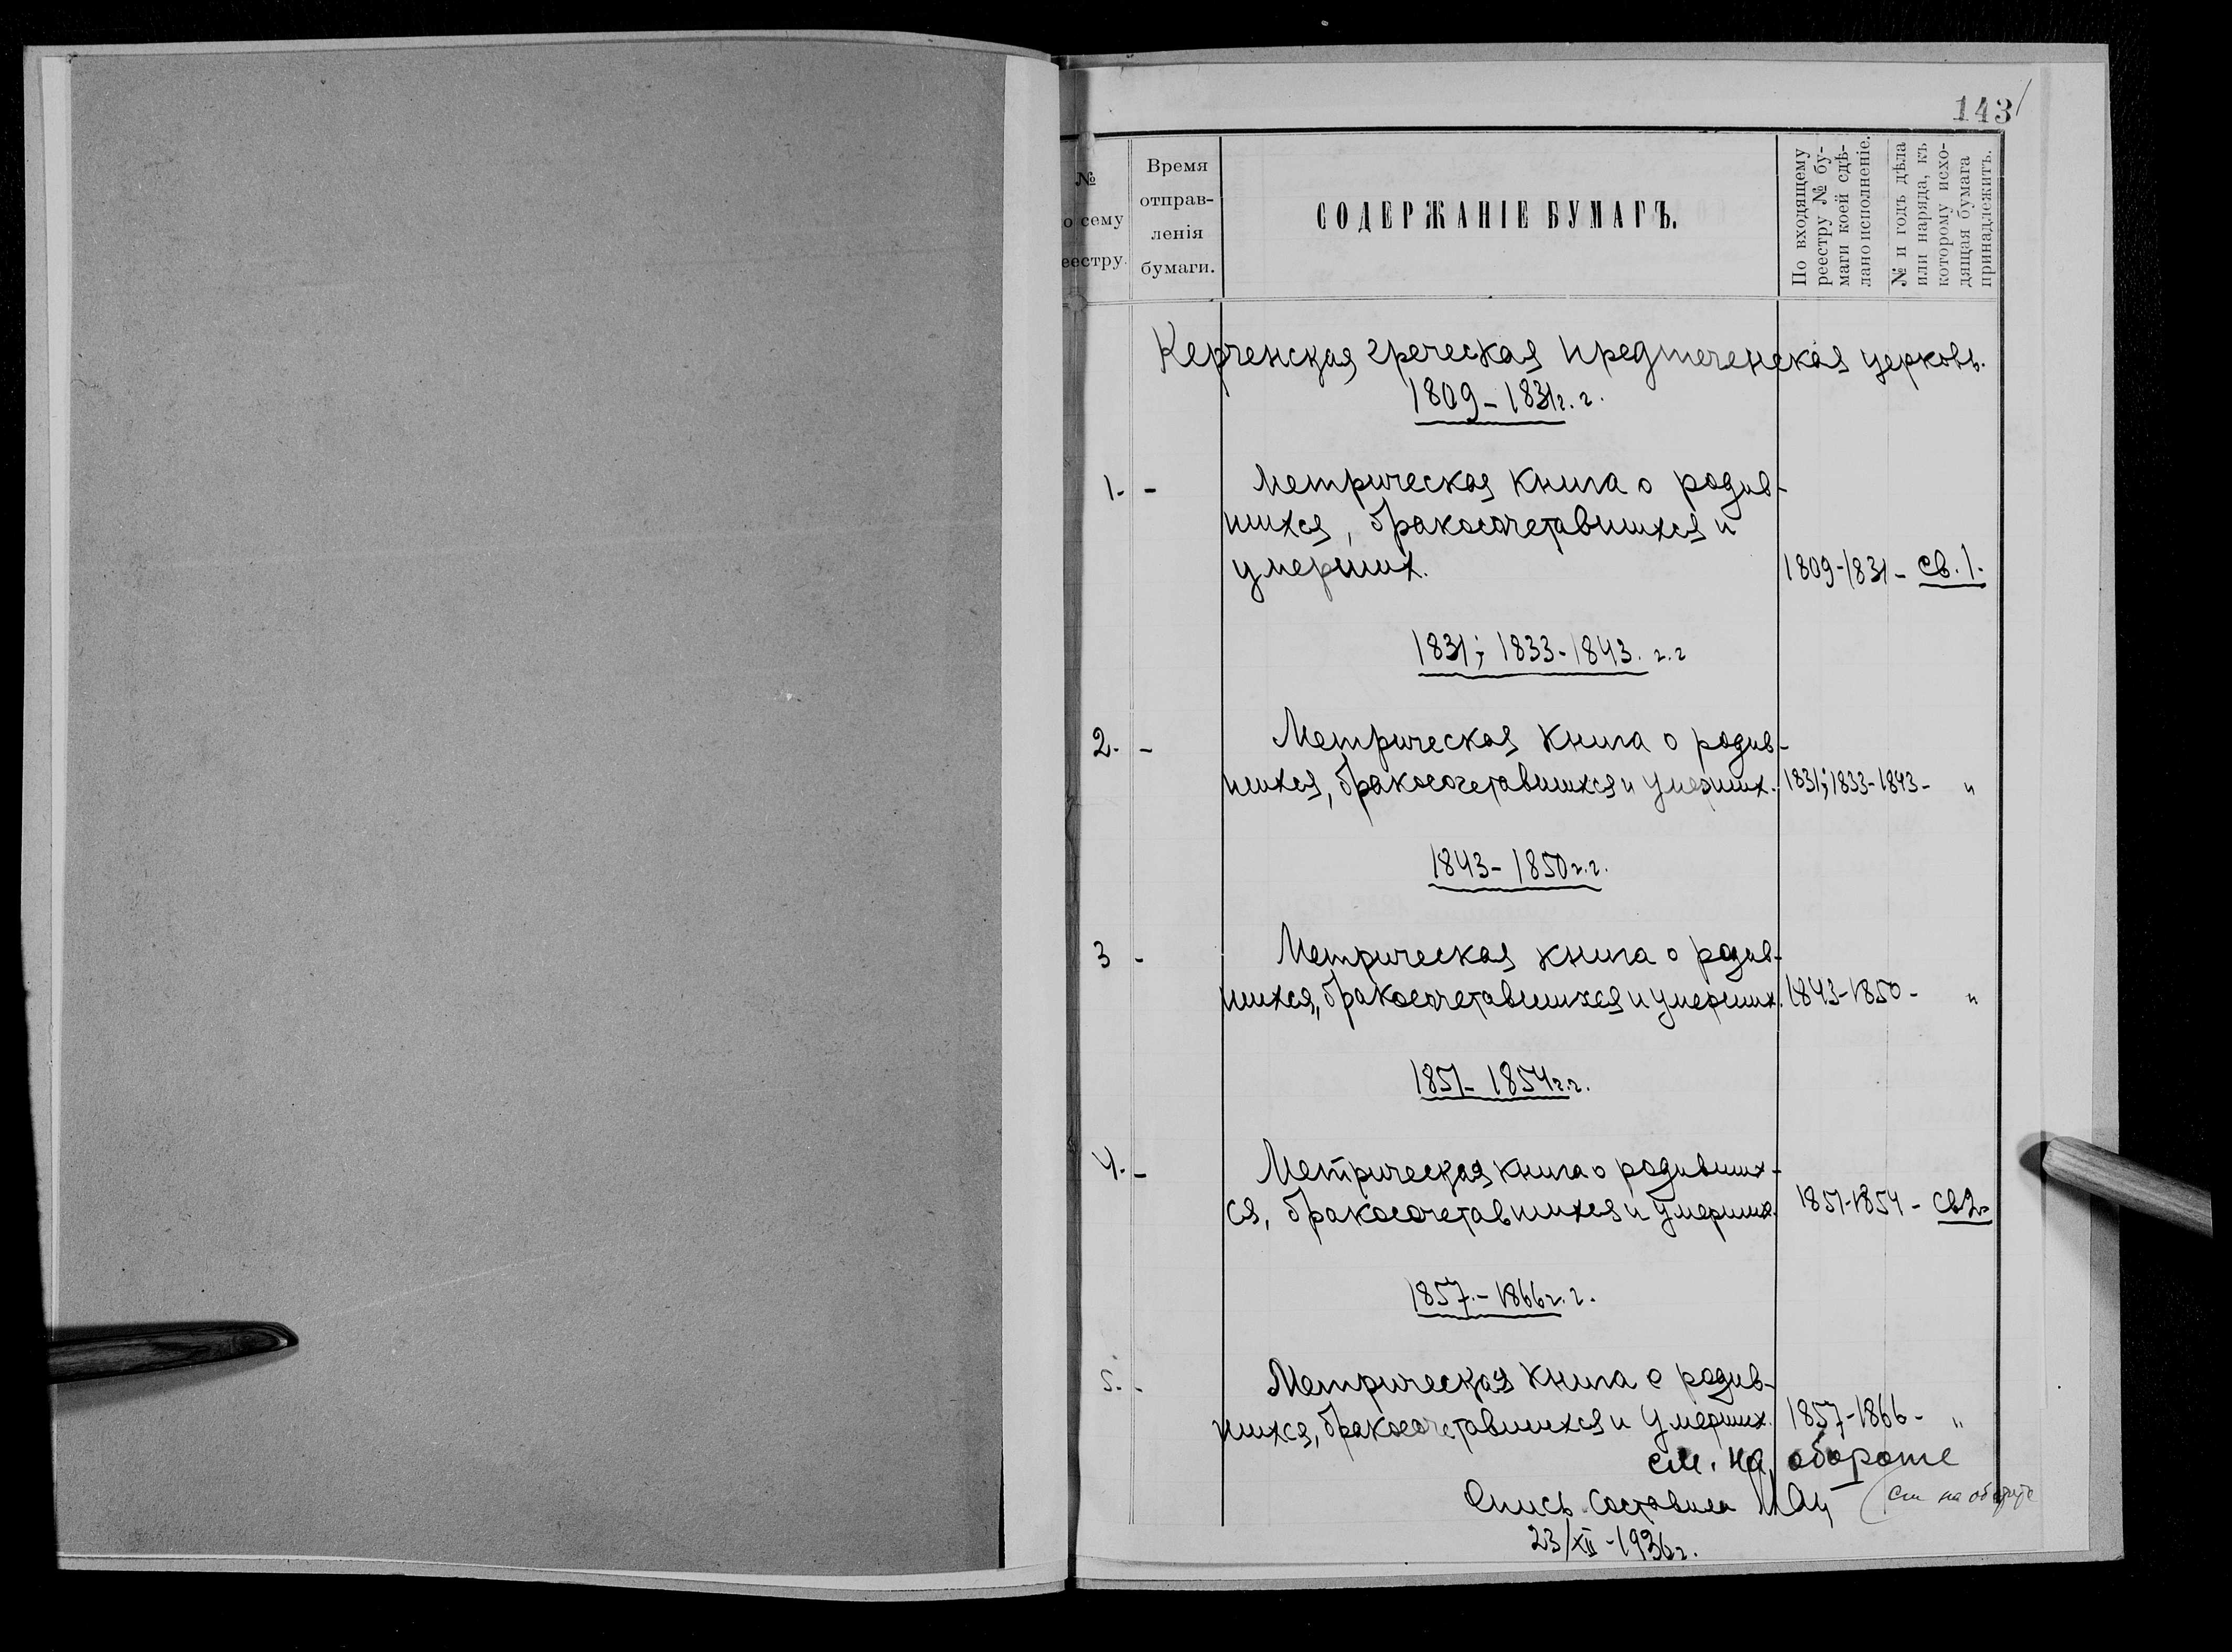 143
№
о сему
еестру.
Время
отправ-
ленія
бумаги.
СОДЕРЖАНІЕ БУМАГЪ.
По входящему
реестру № бу-
маги коей сдѣ-
лано исполненіе.
№ и годъ дѣла
или наряда, къ
которому исхо-
дящая бумага
принадлежитъ.
Керченская греческая Предтеченская церковь.
1809-1831г.г.
1. - Метрическая книга о родив-
шихся, бракосочетавшихся и
умерших. 1809-1831- св. 1.
1831; 1833-1843. г.г
2. - Метрическая книга о родив-
шихся, бракосочетавшихся и умерших. 1831; 1833-1843- "
1843-1850г.г.
3 - Метрическая книга о родив-
шихся, бракосочетавшихся и умерших. 1843-1850- "
1851-1854г.г.
4. - Метрическая книга о родивших-
ся, бракосочетавшихся и умерших. 1851-1854- св 2.
1857.-1866г.г.
5. - Метрическая книга о родив-
шихся, бракосочетавшихся и умерших. 1857-1866- "
см. на обороте
Опись составила (см на обороте
23/XII-1936г.